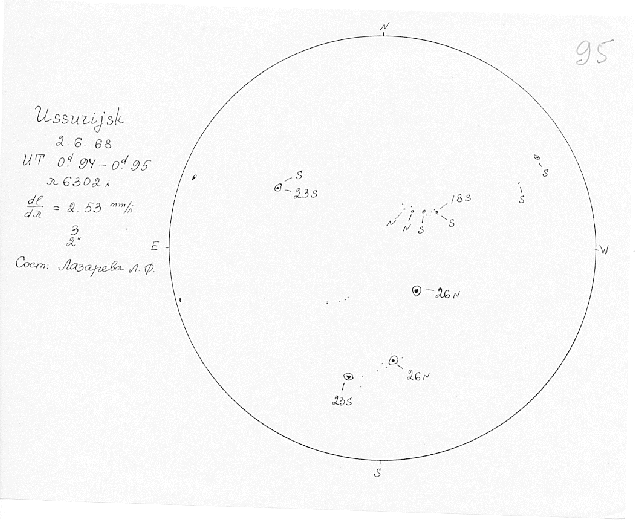 95
Ussurijsk
2 6 68
UT 0ᵈ 94 – 0ᵈ 95
λ 6302 Å
dF/dλ = 2.53 mm/Å
3
2"
Сост. Лазарева Л.Ф.
N
S
23S
18S
N
N
S
S
S
S
E
W
26N
26N
23S
S